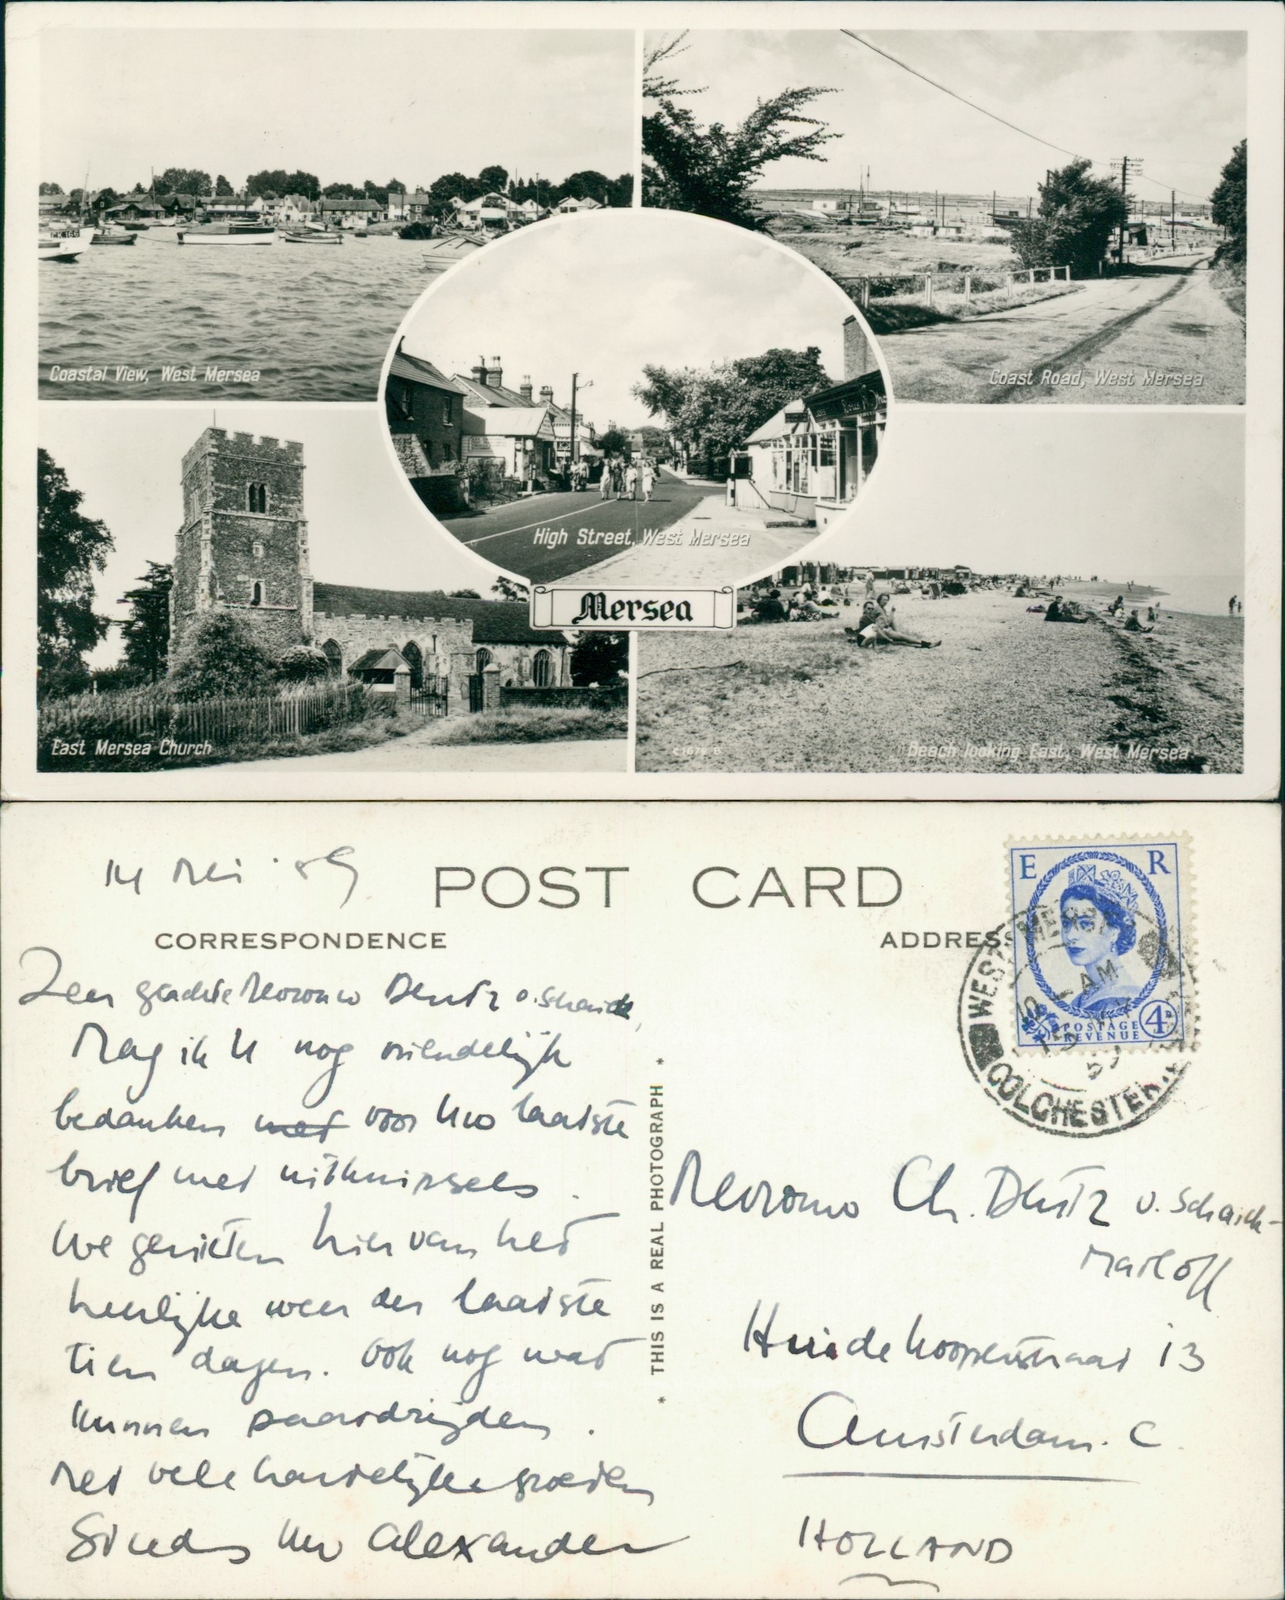 Coastal View, West Mersea
Coast Road, West Mersea
High Street, West Mersea
Mersea
East Mersea Church
Beach looking East, West Mersea
14 Mei '59
POST CARD
CORRESPONDENCE
ADDRESS
E R
POSTAGE
REVENUE
4D
WEST MERSEA
AM
COLCHESTER
Zeer geachte Mevrouw Dentz v. Schaick,
Mag ik U nog vriendelijk
bedanken met voor Uw laatste
brief met uitknipsels.
We genieten hier van het
heerlijke weer der laatste
tien dagen. Ook nog wat
kunnen paardrijden.
Met vele hartelijke groeten
Steeds Uw Alexander
* THIS IS A REAL PHOTOGRAPH *
Mevrouw Ch. Dentz v. Schaick-
Marloff
Huidekooperstraat 13
Amsterdam. C
HOLLAND